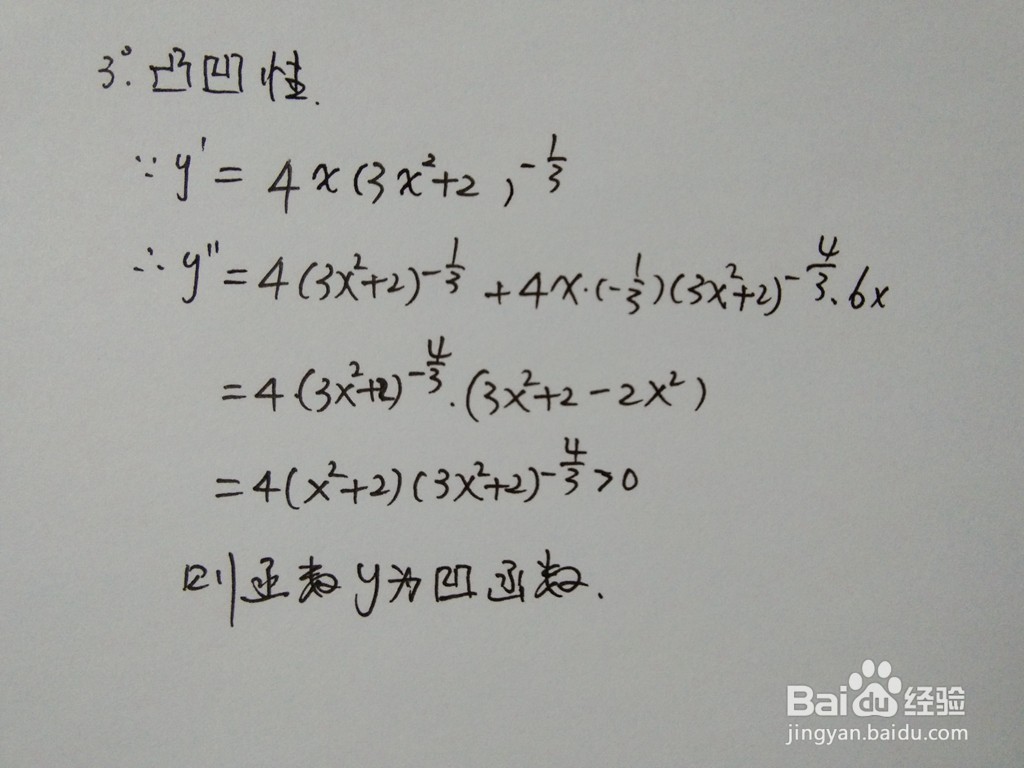 3°. 凸凹性.
∵ y' = 4x(3x²+2)^{-1/3}
∴ y'' = 4(3x²+2)^{-1/3} + 4x·(-1/3)(3x²+2)^{-4/3}·6x
= 4·(3x²+2)^{-4/3}·(3x²+2-2x²)
= 4(x²+2)(3x²+2)^{-4/3} > 0
则函数y为凹函数.
Bai du 经验
jingyan.baidu.com